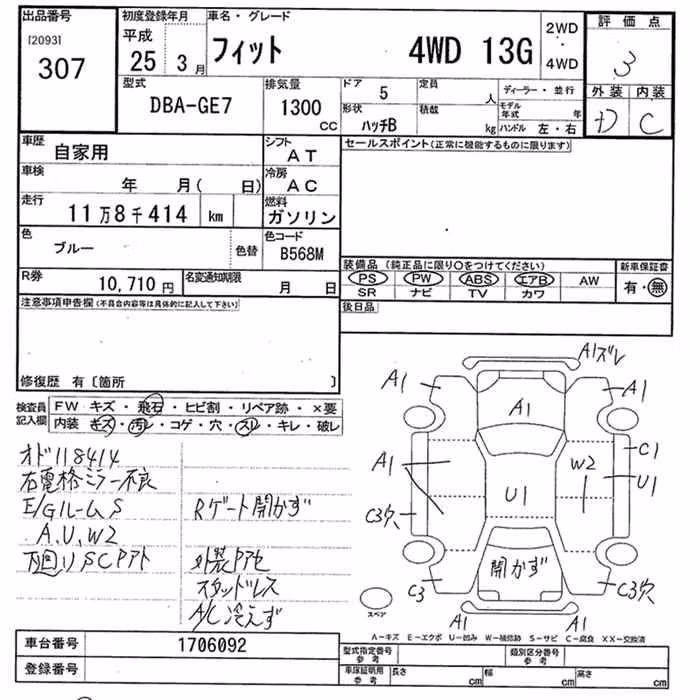 出品番号
[2093]
307
初度登録年月
平成
25 3月
車名・グレード
フィット 4WD 13G
2WD
・
4WD
評価点
3
外装 内装
D C
型式
DBA-GE7
排気量
1300
CC
ドア
5
定員
人
形状
ハッチB
積載
kg
ディーラー・並行
モデル
年式 年
ハンドル 左・右
車歴
自家用
シフト
AT
車検
年 月( 日)
冷房
AC
走行
11万8千414 km
燃料
ガソリン
色
ブルー
色替
色コード
B568M
R券
10,710円
名変通知期限
月 日
セールスポイント(正常に機能するものに限ります)
装備品 (純正品に限り〇をつけてください)
PS PW ABS エアB AW
SR ナビ TV カワ
新車保証書
有・無
後日品
注意事項申告欄(不具合内容等は具体的に記入して下さい)
修復歴 有〔箇所 〕
検査員
記入欄
FW キズ・飛石・ヒビ割・リペア跡・×要
内装・キズ・汚レ・コゲ・穴・スレ・キレ・破レ
オド118414
右電格ミラー不良
E/Gルーム S
A.U.W2
下廻りSCPアト
Rゲート開かず
外装Pアセ
スタッドレス
A/C冷えず
A1ズレ
A1
A1
A1
A1
W2
C1
U1
U1
C3穴
開かず
C3
C3穴
A1
A1
スペア
A－キズ E－エクボ U－凹み W－補修跡 S－サビ C－腐食 XX－交換済
車台番号
1706092
登録番号
型式指定番号
参考
類別区分番号
参考
車庫証明用
参考
長さ cm
幅 cm
高さ cm